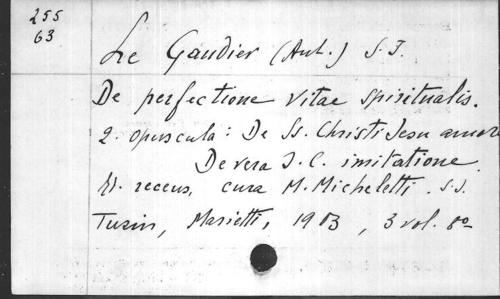 255
63
Le Gaudier (Ant.) S.J.
De perfectione vitae spiritualis.
2. opuscula: De Ss. Christi Jesu amore
De vera J.C. imitatione.
recens. cura M. Micheletti. S.J.
Turin, Marietti, 1903, 3 vol. 8º